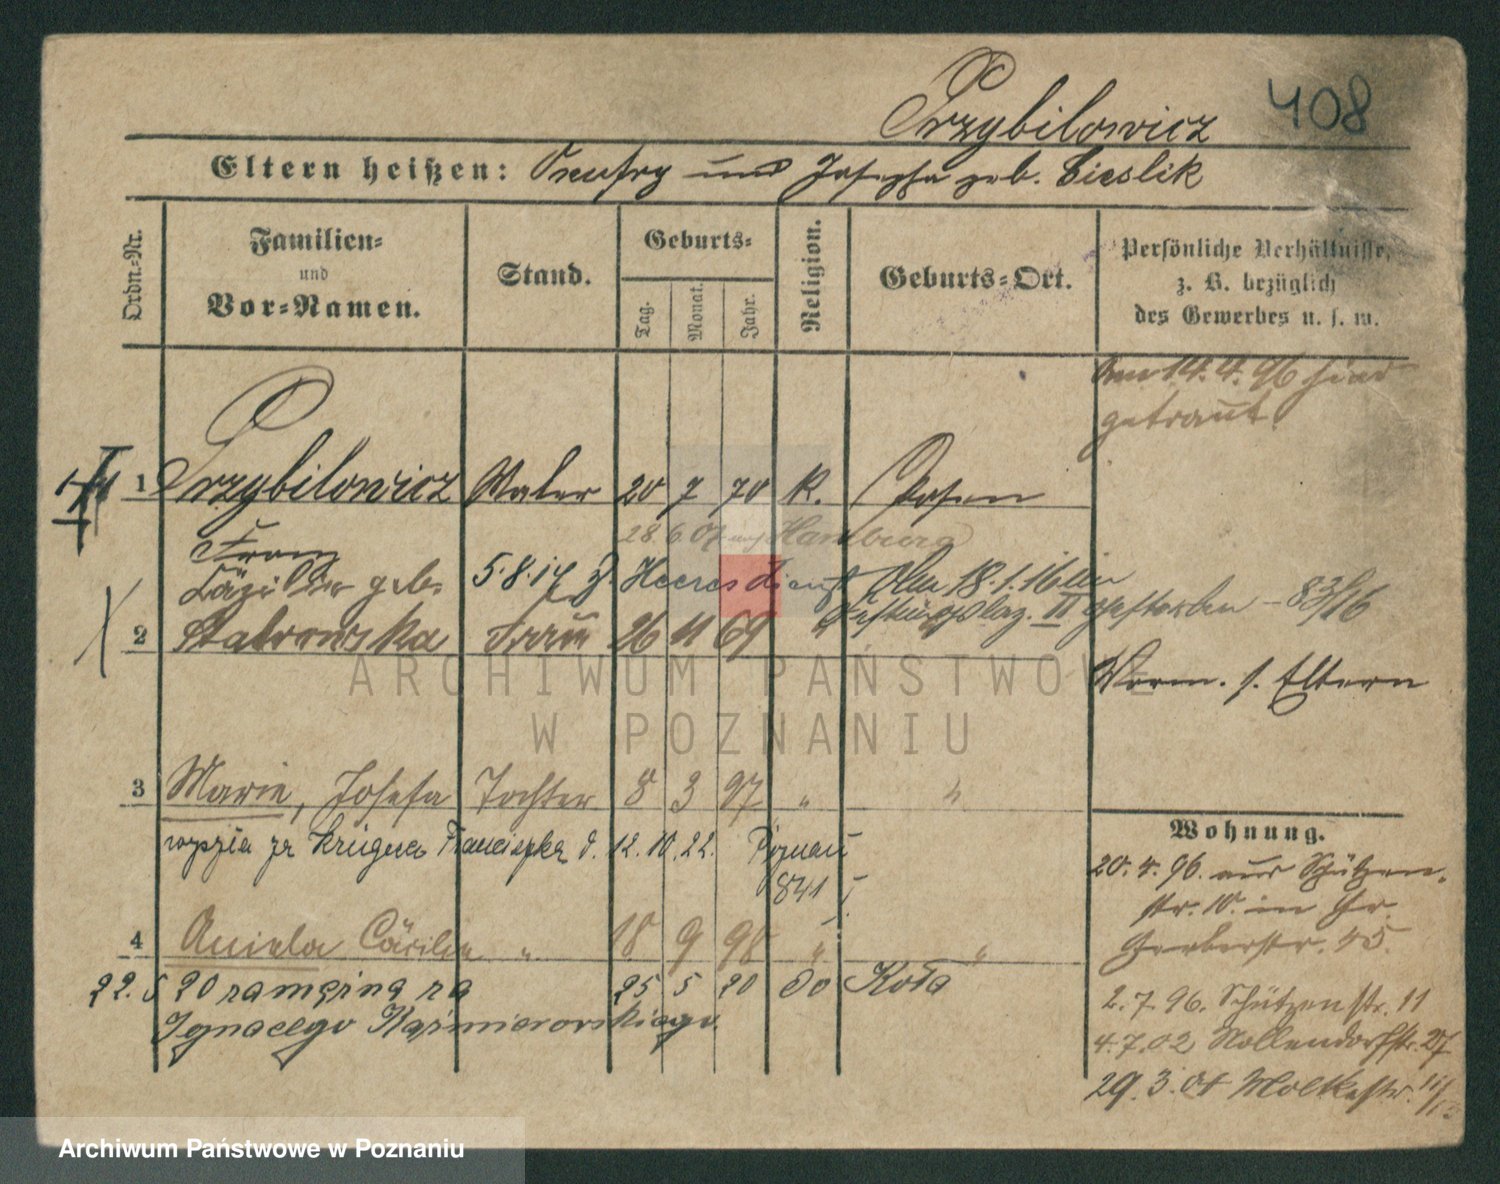 408
Przybilowicz
Eltern heißen: Onufry und Josepha geb. Cieslik
Ordn.-Nr.
Familien-
und
Vor-Namen.
Stand.
Geburts-
Tag.
Monat.
Jahr.
Religion.
Geburts-Ort.
Persönliche Verhältnisse,
z. B. bezüglich
des Gewerbes u. s. w.
Am 14. 4. 96 sind
getraut.
1 Przybilowicz Maler 20 7 70 k. Posen
28. 6. 07 Hamburg
Franz
Cäzilie geb. 5. 8. 17 z. Heeresdienst Am 18. 1. 16 im
Festungslaz. II gestorben – 83/16
2 Stabrowska Frau 26 11 69 " "
ARCHIWUM PAŃSTWOWE
W POZNANIU
Vorm. s. Eltern
3 Marie, Josefa Tochter 8 3 97 " "
wyszła za Krügera Franciszka d. 12. 10. 22. Poznań
841 I.
4 Aniela Cäcilie " 18 9 98 " "
22. 5 20 zamężna za 25 5 20 do Koła
Ignacego Kaźmierowskiego
Wohnung.
20. 4. 96. aus Schützen-
str. 10. in Gr.
Gerberstr. 45.
2. 7. 96. Schützenstr. 11
4. 7. 02 Nollendorfstr. 27
29. 3. 04 Moltkestr. 11/
Archiwum Państwowe w Poznaniu